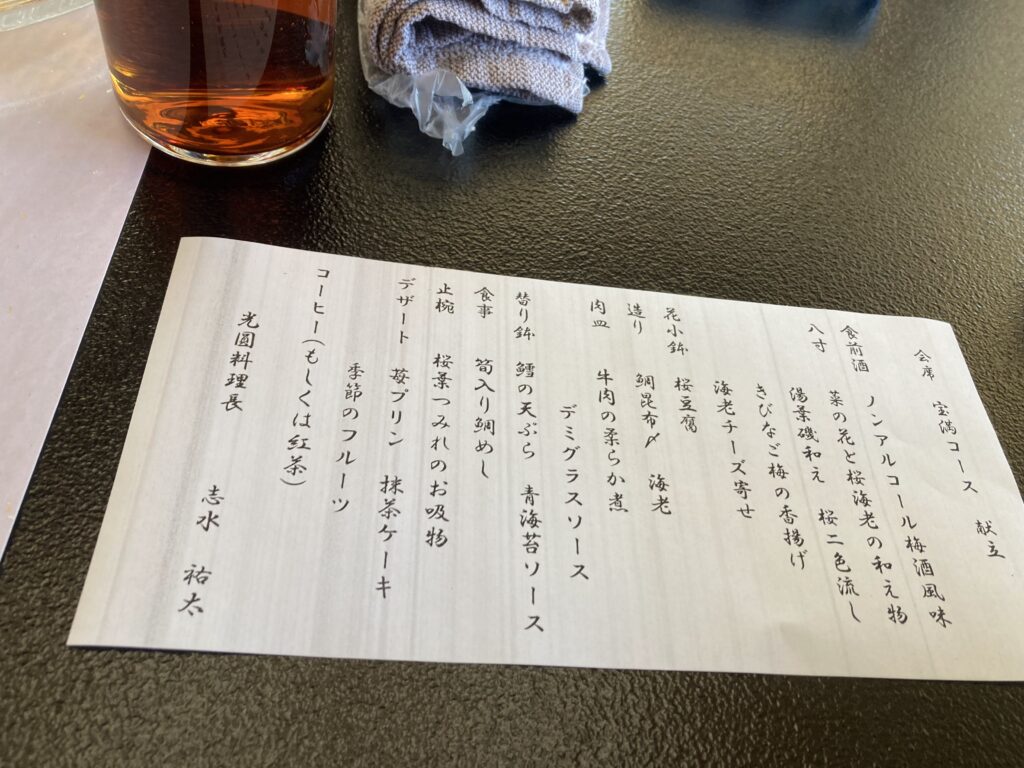 会席 宝満コース 献立
食前酒 ノンアルコール梅酒風味
八寸 菜の花と桜海老の和え物
湯葉磯和え 桜二色流し
きびなご梅の香揚げ
海老チーズ寄せ
花小鉢 桜豆腐
造り 鯛昆布〆 海老
肉皿 牛肉の柔らか煮
デミグラスソース
替り鉢 鱈の天ぷら 青海苔ソース
食事 筍入り鯛めし
止椀 桜葉つみれのお吸物
デザート 苺プリン 抹茶ケーキ
季節のフルーツ
コーヒー(もしくは紅茶)
光圓料理長 志水 祐太